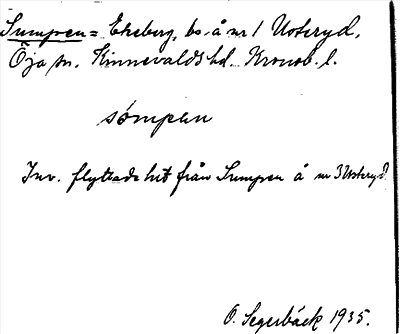 Sumpen = Ekeberg, bs. å nr 1 Usteryd,
Öja sn. Kinnevalds hd. Kronob. l.
sómpen
Inv. flyttade hit från Sumpen å nr 3 Usteryd.
O. Segerbäck 1935.